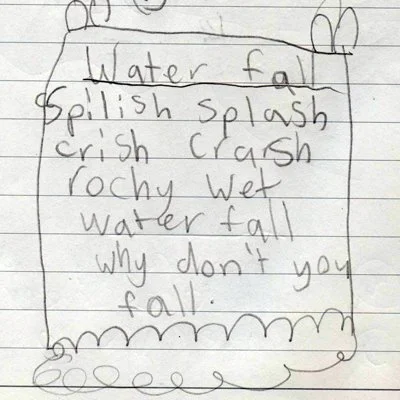 Water fall
Spilish splash
crish crash
rochy wet
water fall
why don't you
fall.